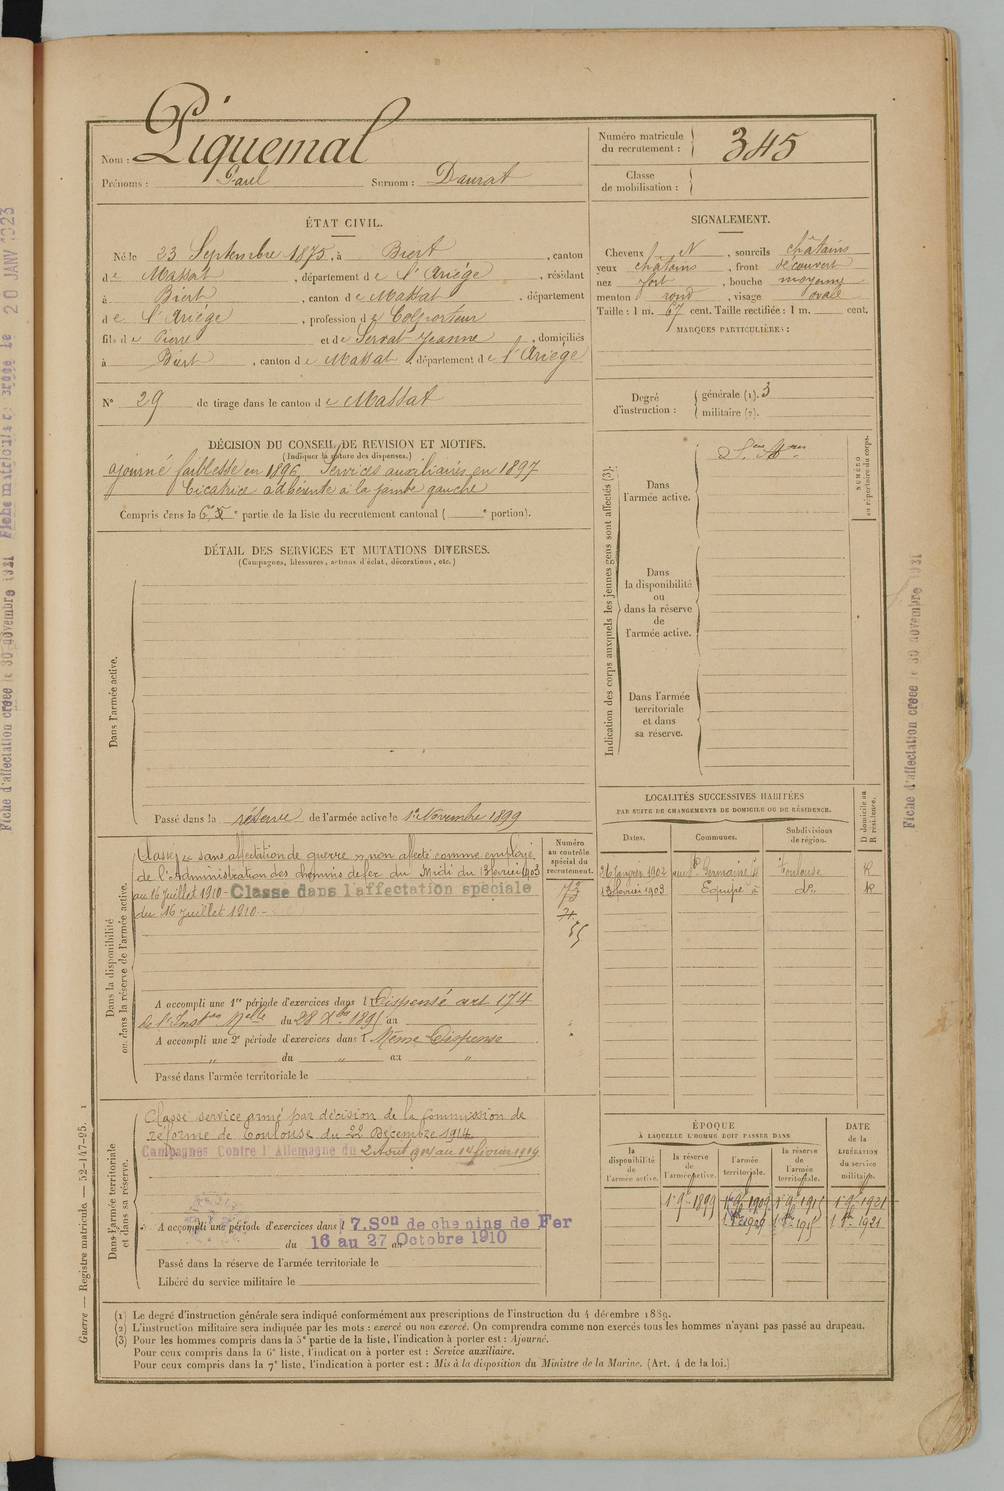 Nom : Piquemal
Prénoms : Paul Surnom : Daurat
Numéro matricule du recrutement : 345
Classe de mobilisation :
ÉTAT CIVIL.
Né le 23 Septembre 1875, à Biert, canton
de Massat, département de l'Ariége, résidant
à Biert, canton de Massat, département
de l'Ariége, profession de Colporteur
fils de Pierre et de Servat Jeanne, domiciliés
à Biert, canton de Massat, département de l'Ariége
N° 29 de tirage dans le canton de Massat
SIGNALEMENT.
Cheveux N, sourcils châtains
yeux châtains, front découvert
nez fort, bouche moyenne
menton rond, visage ovale
Taille : 1 m. 67 cent. Taille rectifiée : 1 m. cent.
MARQUES PARTICULIÈRES :
Degré d'instruction : générale (1). 3
militaire (2).
DÉCISION DU CONSEIL DE REVISION ET MOTIFS.
(Indiquer la nature des dispenses.)
ajourné faiblesse en 1896 Services auxiliaires en 1897
Cicatrice adhérente à la jambe gauche
Compris dans la 6e partie de la liste du recrutement cantonal ( e portion).
DÉTAIL DES SERVICES ET MUTATIONS DIVERSES.
(Campagnes, blessures, actions d'éclat, décorations, etc.)
Dans l'armée active.
Passé dans la réserve de l'armée active le 1er Novembre 1899
Indication des corps auxquels les jeunes gens sont affectés (3).
Dans l'armée active.
Dans la disponibilité ou dans la réserve de l'armée active.
Dans l'armée territoriale et dans sa réserve.
NUMÉRO au répertoire du corps.
Dans la disponibilité ou dans la réserve de l'armée active.
Classé « sans affectation de guerre » non affecté comme employé
de l'Administration des chemins de fer du Midi du 13 février 1903
au 16 juillet 1910 - Classé dans l'affectation spéciale
du 16 juillet 1910 -
Numéro au contrôle spécial du recrutement.
73
71
55
A accompli une 1re période d'exercices dans l Dispensé art 174
de l'Inston Melle du 28 Xbre 1895 au
A accompli une 2e période d'exercices dans l Même Dispense
" du " au "
Passé dans l'armée territoriale le
LOCALITÉS SUCCESSIVES HABITÉES
PAR SUITE DE CHANGEMENTS DE DOMICILE OU DE RÉSIDENCE.
Dates. Communes. Subdivisions de région. D domicile ou R résidence.
26 janvier 1902 Toulouse R
13 février 1903 do R
Dans l'armée territoriale et dans sa réserve.
Classé service armé par décision de la commission de
réforme de Toulouse du 22 Décembre 1914
Campagnes Contre l'Allemagne du 2 Aout 1914 au 14 février 1919
A accompli une période d'exercices dans l 7.Son de chemins de Fer
du 16 au 27 Octobre 1910
Passé dans la réserve de l'armée territoriale le
Libéré du service militaire le
ÉPOQUE
À LAQUELLE L'HOMME DOIT PASSER DANS
la disponibilité de l'armée active. la réserve de l'armée active. l'armée territoriale. la réserve de l'armée territoriale.
DATE de la LIBÉRATION du service militaire.
1 9bre 1899 1 9bre 1909 1 9bre 1915 1 9bre 1921
1 8bre 1909 1 8bre 1915 1 8bre 1921
(1) Le degré d'instruction générale sera indiqué conformément aux prescriptions de l'instruction du 4 décembre 1889.
(2) L'instruction militaire sera indiquée par les mots : exercé ou non exercé. On comprendra comme non exercés tous les hommes n'ayant pas passé au drapeau.
(3) Pour les hommes compris dans la 5e partie de la liste, l'indication à porter est : Ajourné.
Pour ceux compris dans la 6e liste, l'indication à porter est : Service auxiliaire.
Pour ceux compris dans la 7e liste, l'indication à porter est : Mis à la disposition du Ministre de la Marine. (Art. 4 de la loi.)
Guerre — Registre matricule. — 52-147-25. 1
Fiche d'affectation créée le 30 novembre 1921 Fiche matricule créée le 20 JANV 1923
Fiche d'affectation créée le 30 novembre 1921